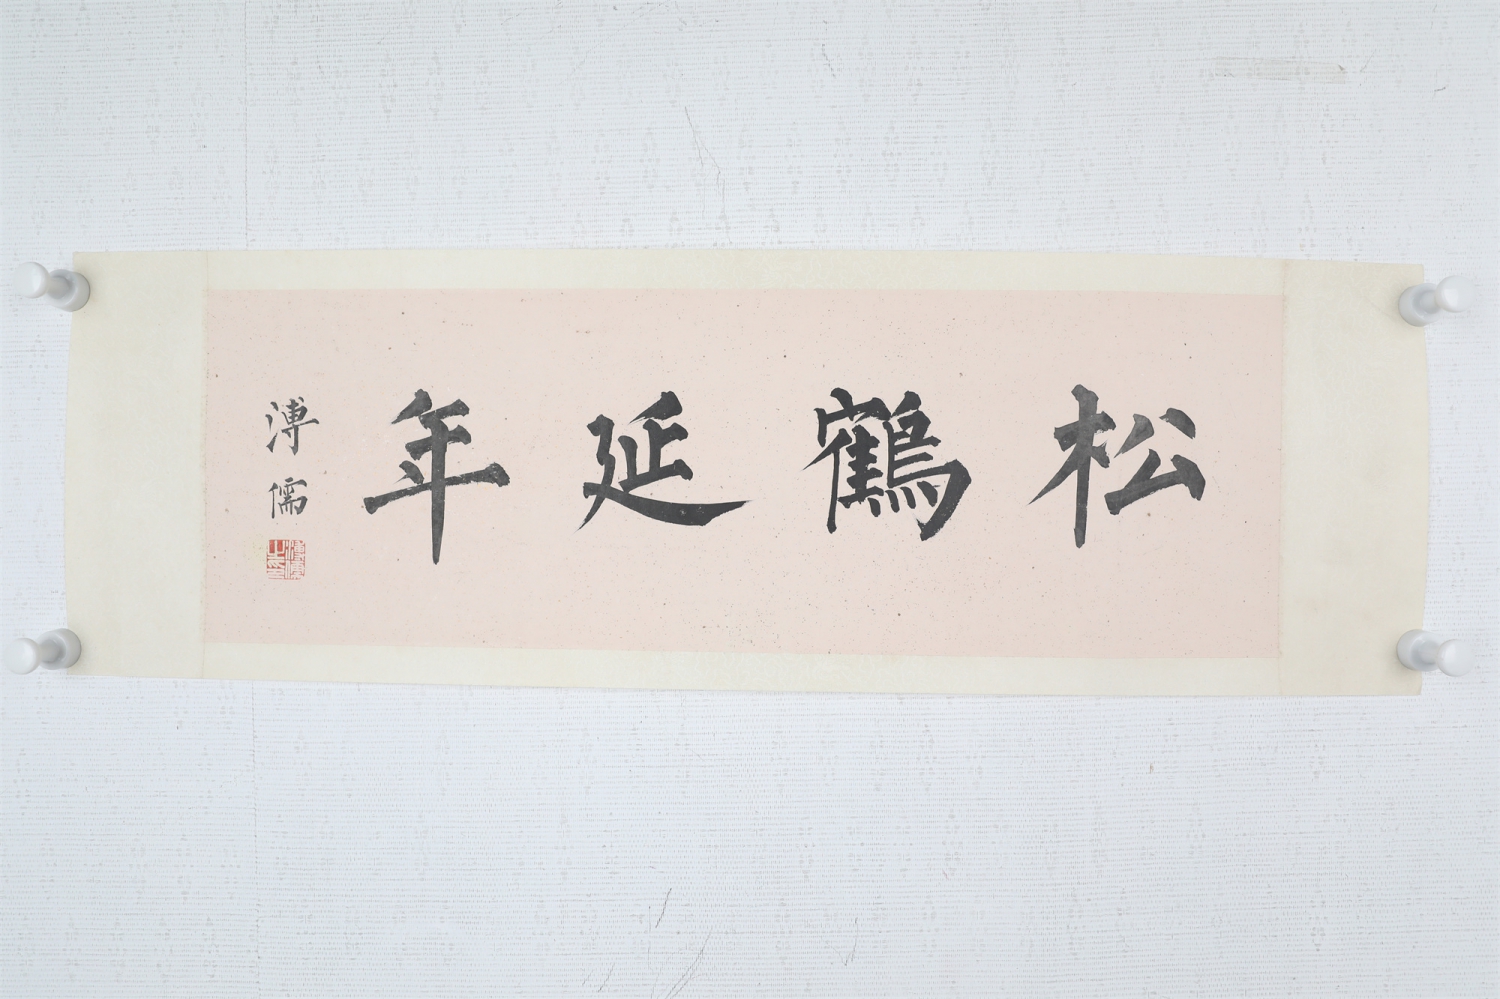 松鶴延年
溥儒